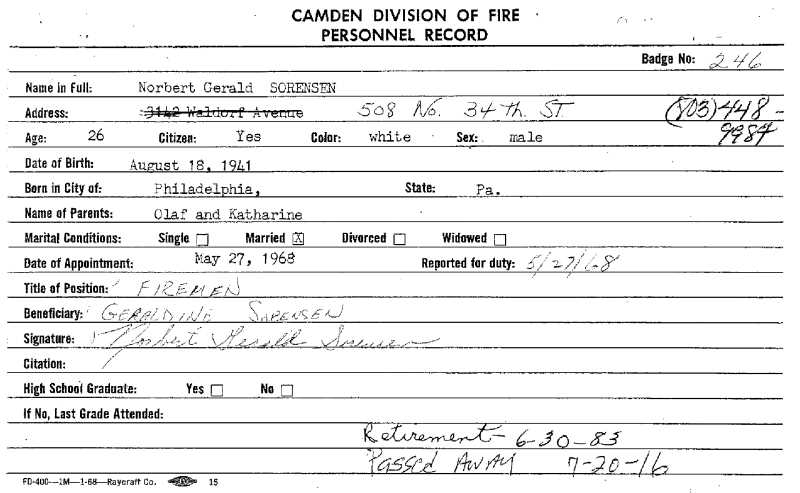 CAMDEN DIVISION OF FIRE
PERSONNEL RECORD
Badge No: 246
Name in Full: Norbert Gerald SORENSEN
Address: 3142 Waldorf Avenue 508 No. 34th. ST. (803) 448-
9984
Age: 26 Citizen: Yes Color: white Sex: male
Date of Birth: August 18, 1941
Born in City of: Philadelphia, State: Pa.
Name of Parents: Olaf and Katharine
Marital Conditions: Single ☐ Married ☒ Divorced ☐ Widowed ☐
Date of Appointment: May 27, 1968 Reported for duty: 5/27/68
Title of Position: FIREMEN
Beneficiary: GERALDINE SORENSEN
Signature: Norbert Gerald Sorensen
Citation:
High School Graduate: Yes ☐ No ☐
If No, Last Grade Attended:
Retirement- 6-30-83
Passed AWAY 7-20-16
FD-400—1M—1-68—Raycraft Co. 15